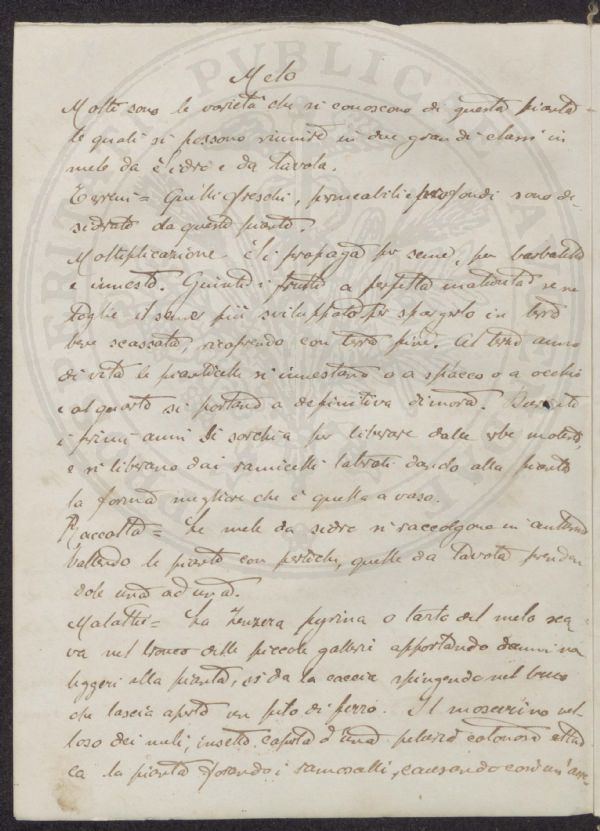 Melo
Molte sono le varietà che si conoscono di questa pianta
le quali si possono riunire in due grandi classi in
mele da sidro e da tavola.
Terreni = Quelli freschi, permeabili e profondi sono de-
siderati da questa pianta.
Moltiplicazione Si propaga per seme, per barbatelle
e innesto. Giunti i frutti a perfetta maturità se ne
toglie il seme più sviluppato per spargerlo in terra
bene scassata, ricoprendo con terra fine. Al terzo anno
di vita le pianticelle si innestano o a spacco o a occhio
e al quarto si portano a definitiva dimora. Durante
i primi anni si sarchia per liberare dalle erbe moleste,
e si liberano dai ramicelli laterali dando alla pianta
la forma migliore che è quella a vaso.
Raccolta = Le mele da sidro si raccolgono in autunno
battendo le piante con pertiche, quelle da tavola prenden
dole una ad una.
Malattie = La Zeuzera pyrina o tarlo del melo sca-
va nel tronco delle piccole gallerie apportando danni non
leggeri alla pianta, si dà la caccia spingendo nel buco
che lascia aperto un filo di ferro. Il moscerino vel-
loso dei meli, insetto coperto d'una peluria cotonosa attac
ca la pianta forando i ramoscelli, causando così un'arre-